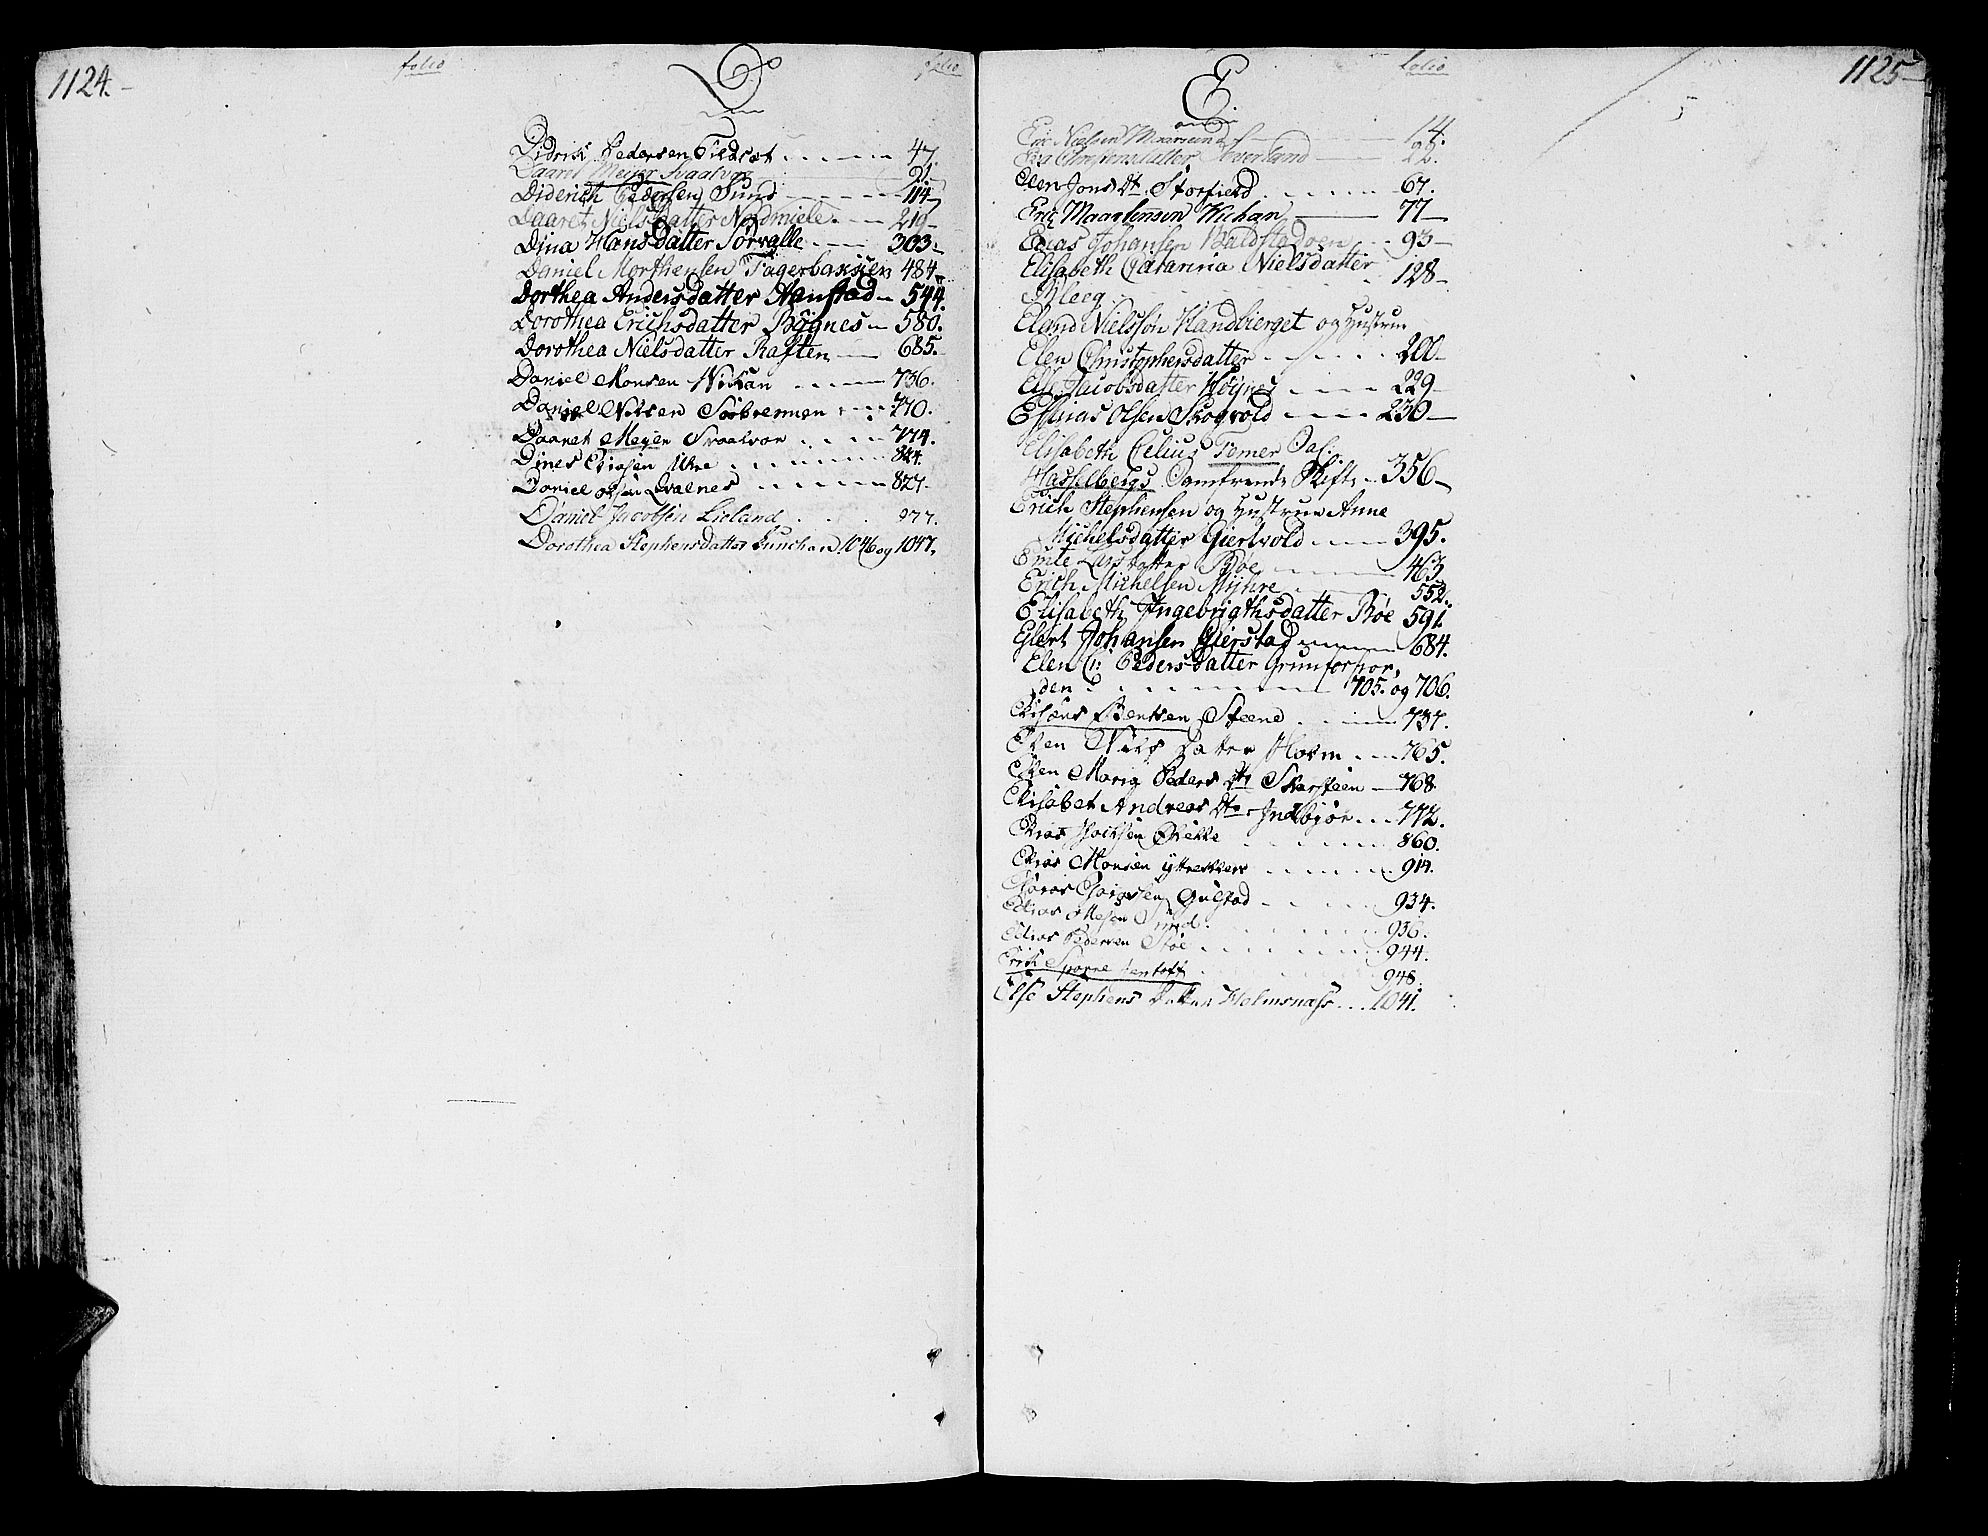 1124.
folio
D
folio
Didrik Pedersen Tildset 47.
Daaret Meyer Svaalvær 91.
Diderich Pedersen Sund 114
Daaret Nielsdatter Nordmiele 219
Dina Hansdatter Sørvalle 303
Daniel Morthensen Fagerbakken 484
Dorthea Andersdatter Nenstad 544
Dorothea Erichsdatter Bögnes 580.
Dorothea Nielsdatter Raften 685.
Daniel Monsen Wikan 736.
Daniel Nilsen Sørbrennen 770.
Daaret Meyer Svaalvær 774.
Dines 844.
Daniel olsen Qvalnes 827.
Daniel Jacobsen Lieland 977.
Dorothea Stephensdatter Kunchan 1046 og 1047.
1125
E
folio
Eric Nielsen 14.
Eva Christensdatter Haverland 22.
Elen Jons Dt. Storfield 67.
Eric Maartensen Wichan 77
Elias Johansen Baldstadøen 93
Elisabeth Catarina Nielsdatter
Bleeg 128
Eland Nielssøn Handbierget og Hustrue
Elen Christophersdatter 200
Else Jacobsdatter Høynes 229
Esaias Olsen Skogvold 230
Elisabeth Celius Temer Sal:
Hasselbergs Samfrende Skifte 356
Erich Stephensen og Hustrue Anne
Michelsdatter Giertvold 395.
Emte Larsdatter Bøe 463
Erich Michelsen Myhre 552.
Elisabeth Ingebrigthsdatter Bøe 591
Eilert Johansen Gierstad 684.
Elen C: Pedersdatter Grunforfior,
den 705. og 706.
Elisæus Bentsen Steene 737.
Elen Nils Datter Holm 765.
Elen Marig Peders Dtr Skarsteen 768.
Elisabet Andreas Dtr Indbjør 772.
Elias 860.
Elias Monsen 914.
Gulstad 934.
Elias Ottesen 936.
Elias Pedersen Bøe 944.
Erik Sparre Jentoft 948.
Else Stephens Datter Holmsnæss 1041.